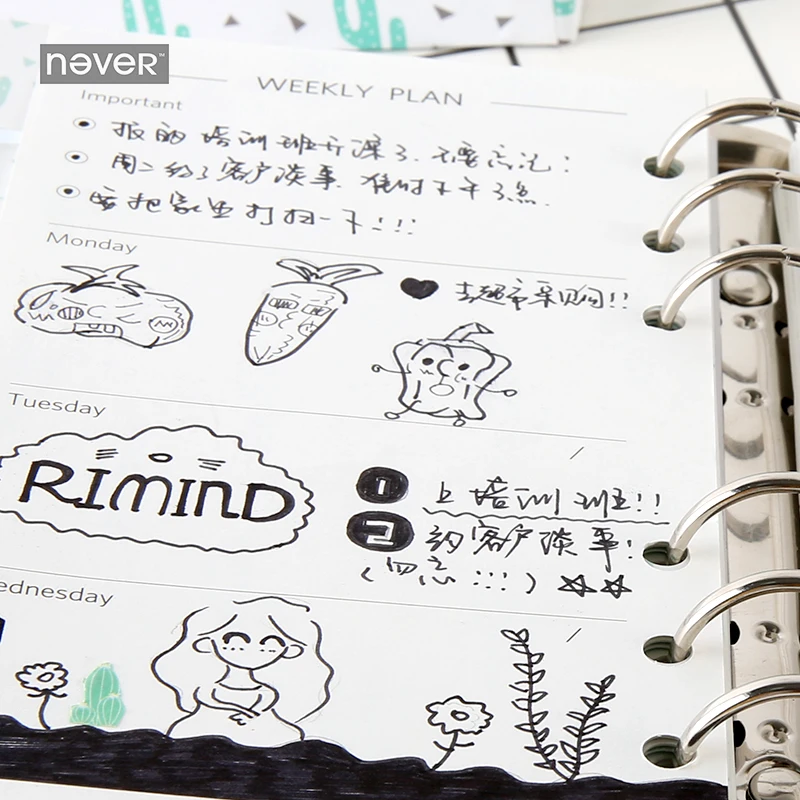 nəver™
WEEKLY PLAN
Important
报的培训班开课了.不要忘记:
周二约了客户谈事.准时下午3点.
要把家里打扫一下!!!
Monday
去超市采购!!
Tuesday
RIMIND
1 上培训班!!
2 约客户谈事!
(勿忘:::)
ednesday